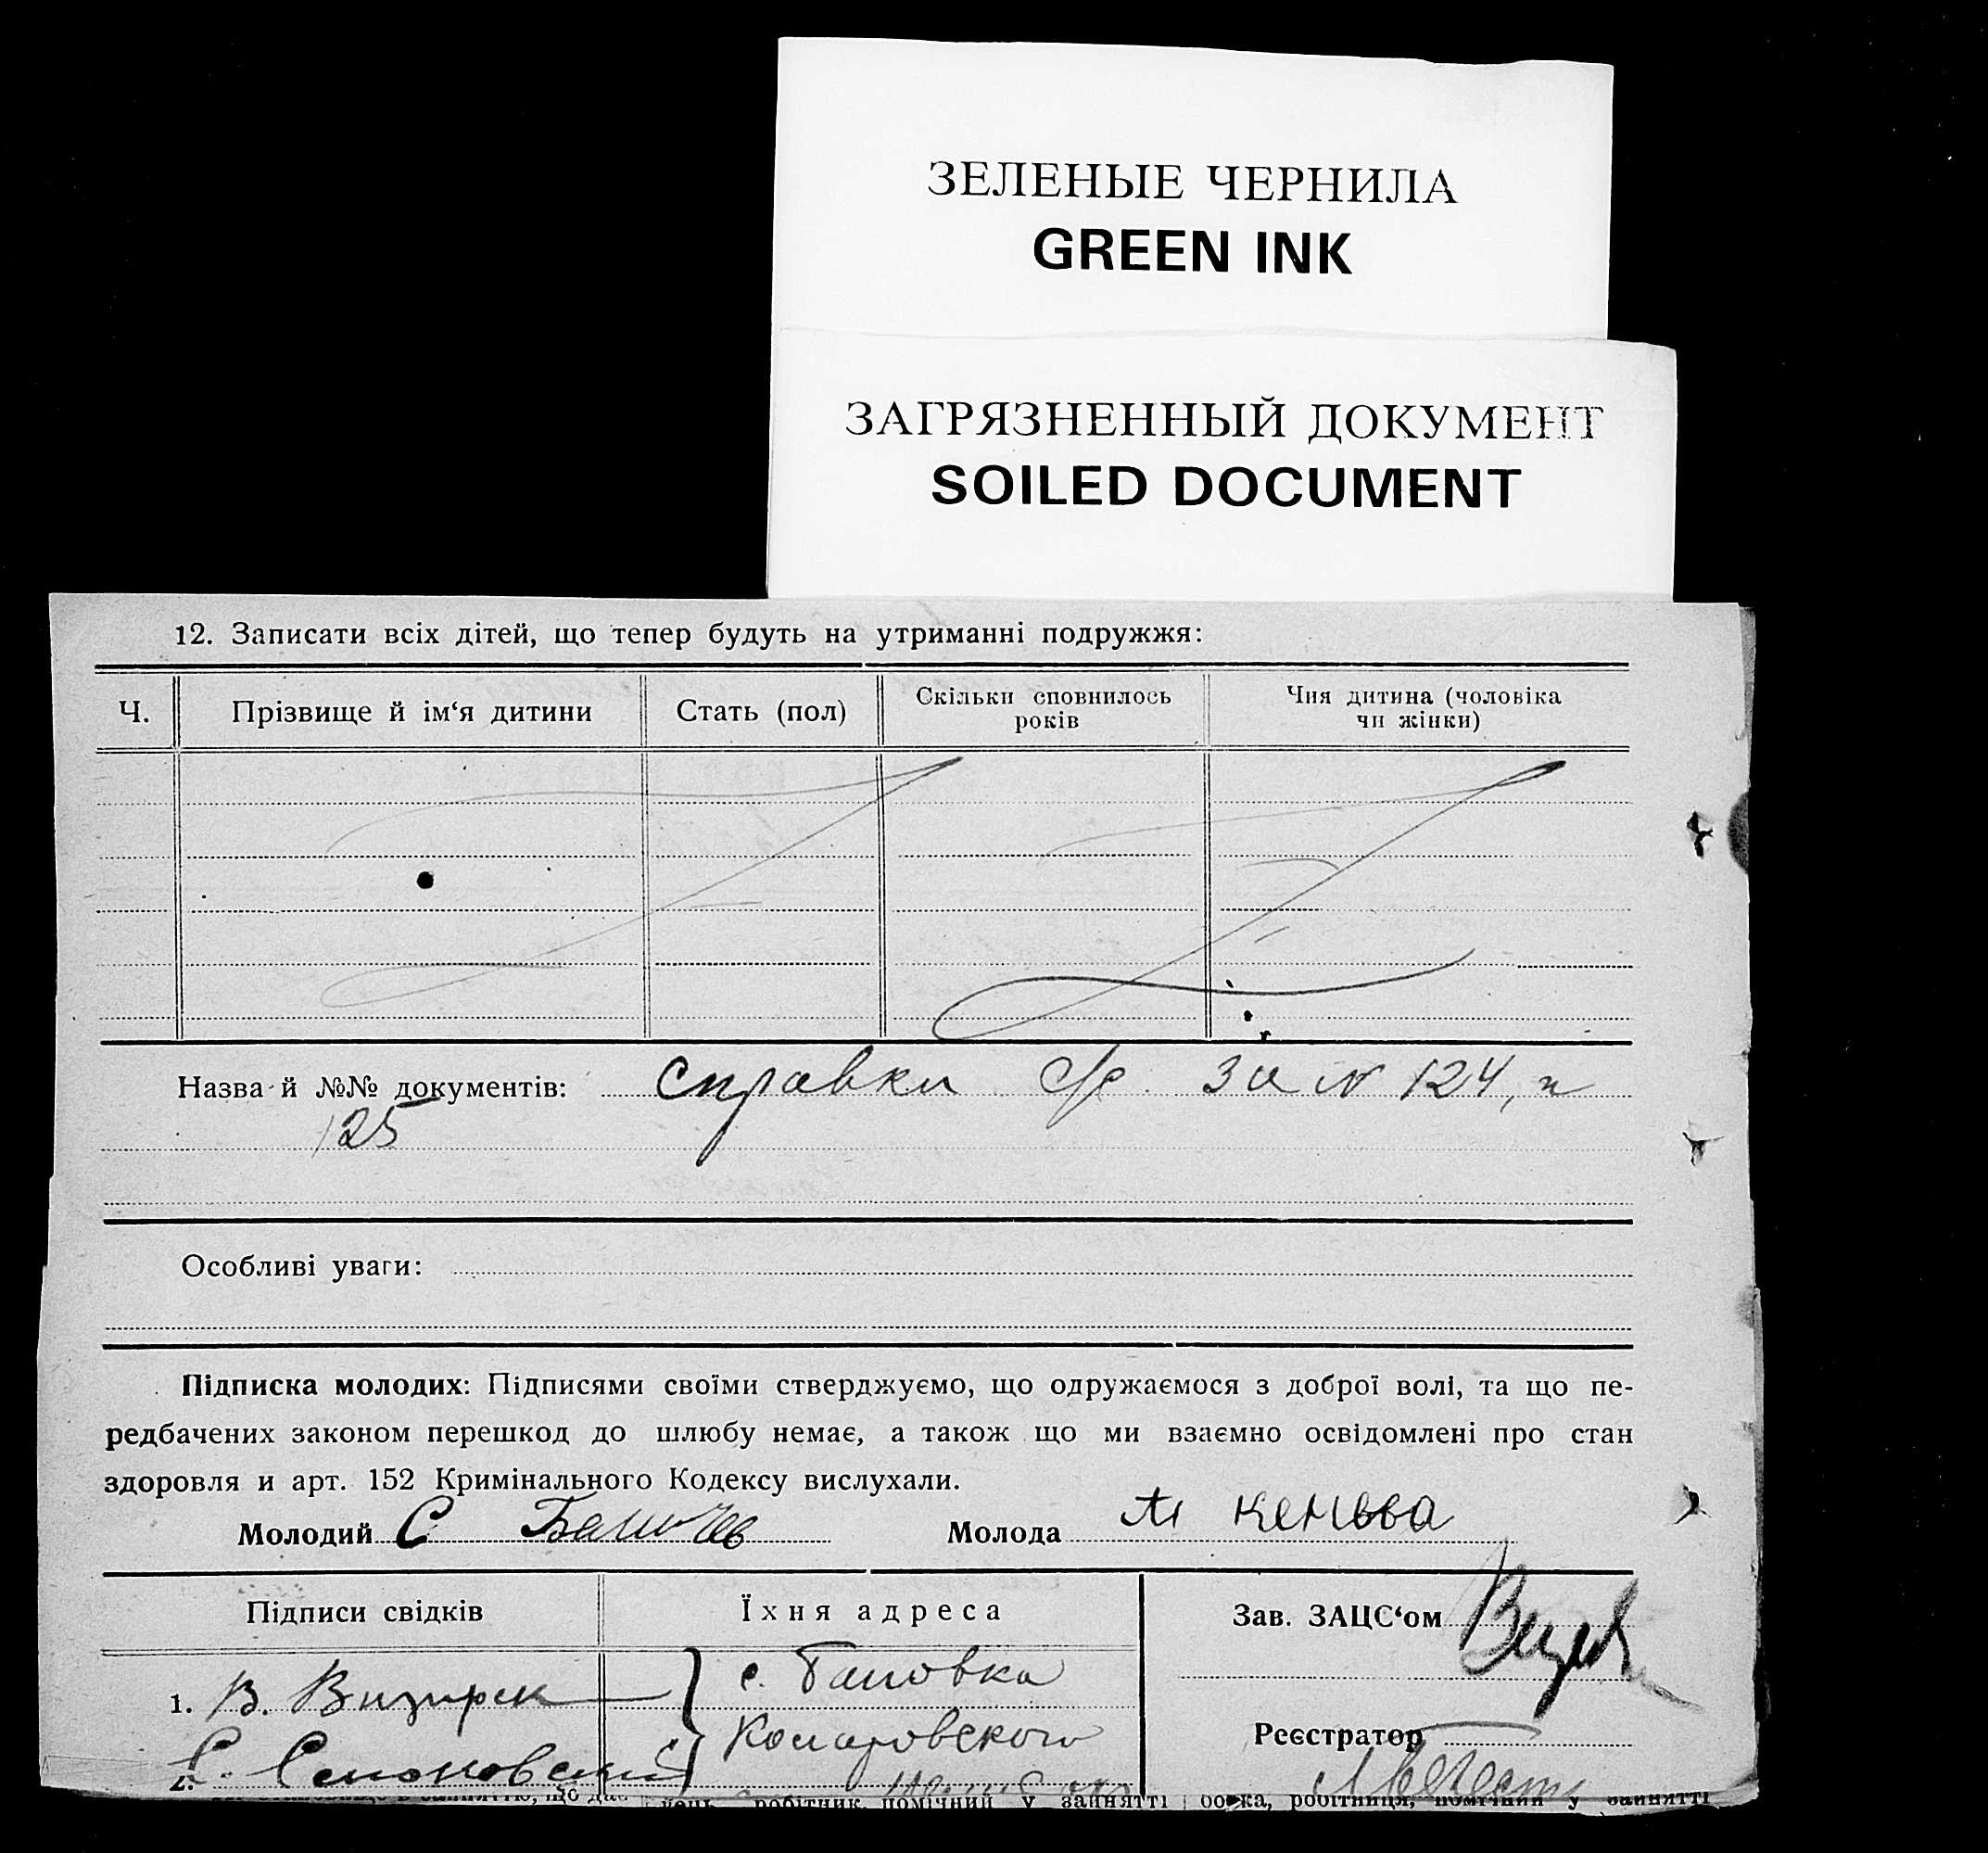 ЗЕЛЕНЫЕ ЧЕРНИЛА
GREEN INK
ЗАГРЯЗНЕННЫЙ ДОКУМЕНТ
SOILED DOCUMENT
12. Записати всіх дітей, що тепер будуть на утриманні подружжя:
Ч.
Прізвище й ім‘я дитини
Стать (пол)
Скільки сповнилось
років
Чия дитина (чоловіка
чи жінки)
Назва й №№ документів: справки с/с за N 124, и
125
Особливі уваги:
Підписка молодих: Підписями своїми стверджуємо, що одружаємося з доброї волі, та що пе-
редбачених законом перешкод до шлюбу немає, а також що ми взаємно освідомлені про стан
здоровля и арт. 152 Кримінального Кодексу вислухали.
Молодий С
Молода
Підписи свідків
Їхня адреса
Зав. ЗАЦС‘ом
1. В.
с.
2. С.
Реєстратор
робітник, помічний у занятті
робітниця, помічний у занятті